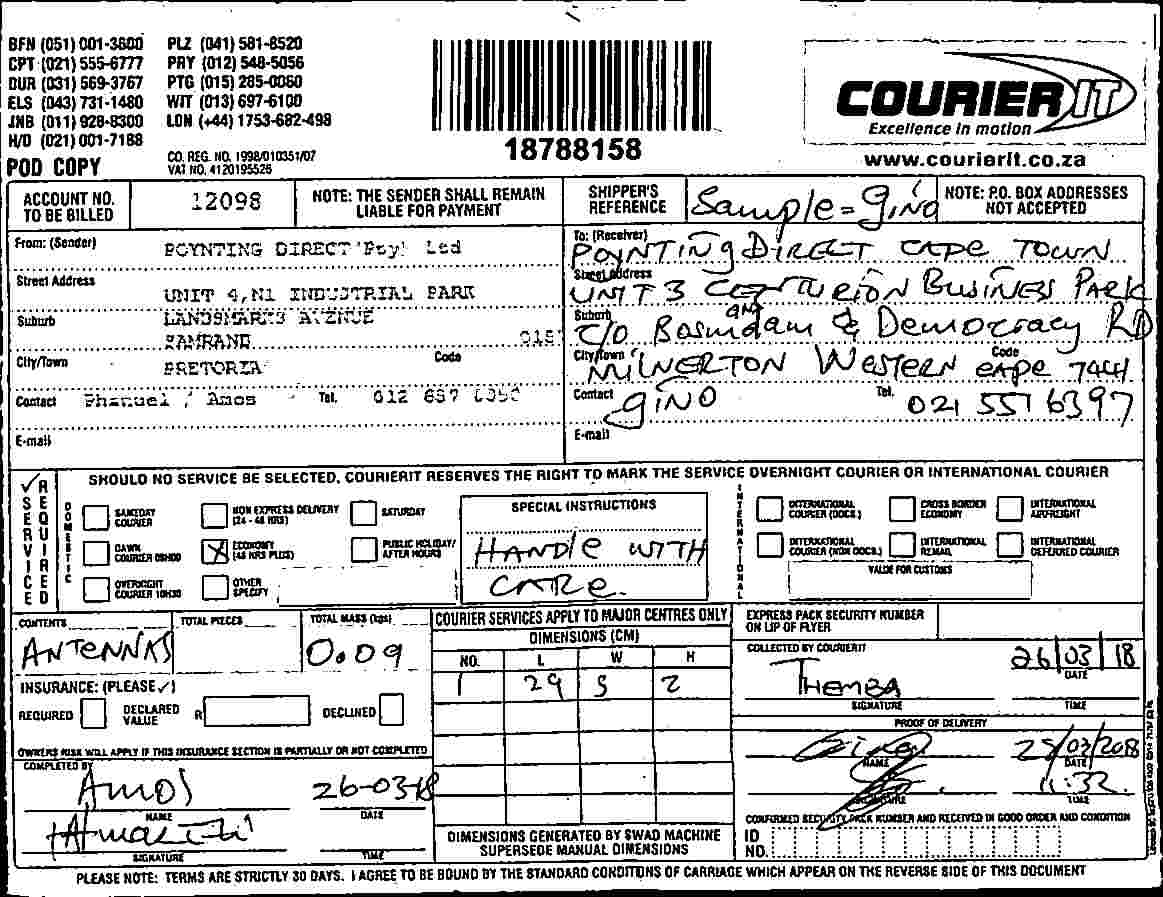 BFN (051) 001-3600 PLZ (041) 581-8520
CPT (021) 555-6777 PRY (012) 548-5056
DUR (031) 569-3767 PTG (015) 285-0060
ELS (043) 731-1480 WIT (013) 697-6100
JNB (011) 928-8300 LON (+44) 1753-682-498
H/O (021) 001-7188
POD COPY
CO. REG. NO. 1998/010351/07
VAT NO. 4120195526
18788158
COURIER IT
Excellence in motion
www.courierit.co.za
ACCOUNT NO. TO BE BILLED 12098
NOTE: THE SENDER SHALL REMAIN LIABLE FOR PAYMENT
SHIPPER'S REFERENCE Sample = gino
NOTE: P.O. BOX ADDRESSES NOT ACCEPTED
From: (Sender) POYNTING DIRECT (Pty) Ltd
Street Address UNIT 4, N1 INDUSTRIAL PARK
Suburb LANDSMARKS AVENUE
SAMRAND 015
City/Town PRETORIA Code
Contact Phanuel / Amos Tel. 012 657
E-mail
To: (Receiver) POYNTING DIRECT CAPE TOWN
Street Address UNIT 3 CENTURION BUSINESS PARK
Suburb C/O Bosmdam & Democracy RD
City/Town MILNERTON WESTERN CAPE Code 7441
Contact GINO Tel. 021 551 6397
E-mail
SERVICE REQUIRED
SHOULD NO SERVICE BE SELECTED, COURIERIT RESERVES THE RIGHT TO MARK THE SERVICE OVERNIGHT COURIER OR INTERNATIONAL COURIER
DOMESTIC
SAMEDAY COURIER
NON EXPRESS DELIVERY (24 - 48 HRS)
SATURDAY
DAWN COURIER 09H00
ECONOMY (48 HRS PLUS)
PUBLIC HOLIDAY/ AFTER HOURS
OVERNIGHT COURIER 10H30
OTHER SPECIFY
SPECIAL INSTRUCTIONS
HANDLE WITH
CARE.
INTERNATIONAL
INTERNATIONAL COURIER (DOCS.)
CROSS BORDER ECONOMY
INTERNATIONAL AIRFREIGHT
INTERNATIONAL COURIER (NON DOCS.)
INTERNATIONAL REMAIL
INTERNATIONAL DEFERRED COURIER
VALUE FOR CUSTOMS
CONTENTS ANTENNAS
TOTAL PIECES
TOTAL MASS (kgs) 0.09
COURIER SERVICES APPLY TO MAJOR CENTRES ONLY
DIMENSIONS (CM)
NO. L W H
1 29 5 2
DIMENSIONS GENERATED BY SWAD MACHINE
SUPERSEDE MANUAL DIMENSIONS
INSURANCE: (PLEASE ✓)
REQUIRED DECLARED VALUE R DECLINED
OWNERS RISK WILL APPLY IF THIS INSURANCE SECTION IS PARTIALLY OR NOT COMPLETED
COMPLETED BY
AMOS 26-03-18
NAME DATE
SIGNATURE TIME
EXPRESS PACK SECURITY NUMBER
ON LIP OF FLYER
COLLECTED BY COURIERIT
THEMBA 26/03/18
DATE
SIGNATURE TIME
PROOF OF DELIVERY
NAME DATE
11:32
SIGNATURE TIME
CONFIRMED SECURITY PACK NUMBER AND RECEIVED IN GOOD ORDER AND CONDITION
ID NO.
PLEASE NOTE: TERMS ARE STRICTLY 30 DAYS. I AGREE TO BE BOUND BY THE STANDARD CONDITIONS OF CARRIAGE WHICH APPEAR ON THE REVERSE SIDE OF THIS DOCUMENT